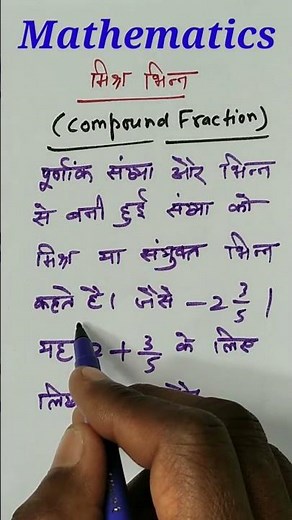 Mathematics
मिश्र भिन्न
(Compound Fraction)
पूर्णांक संख्या और भिन्न
से बनी हुई संख्या को
मिश्र या संयुक्त भिन्न
कहते है। जैसे – 2 3/5 |
यह 2 + 3/5 के लिए